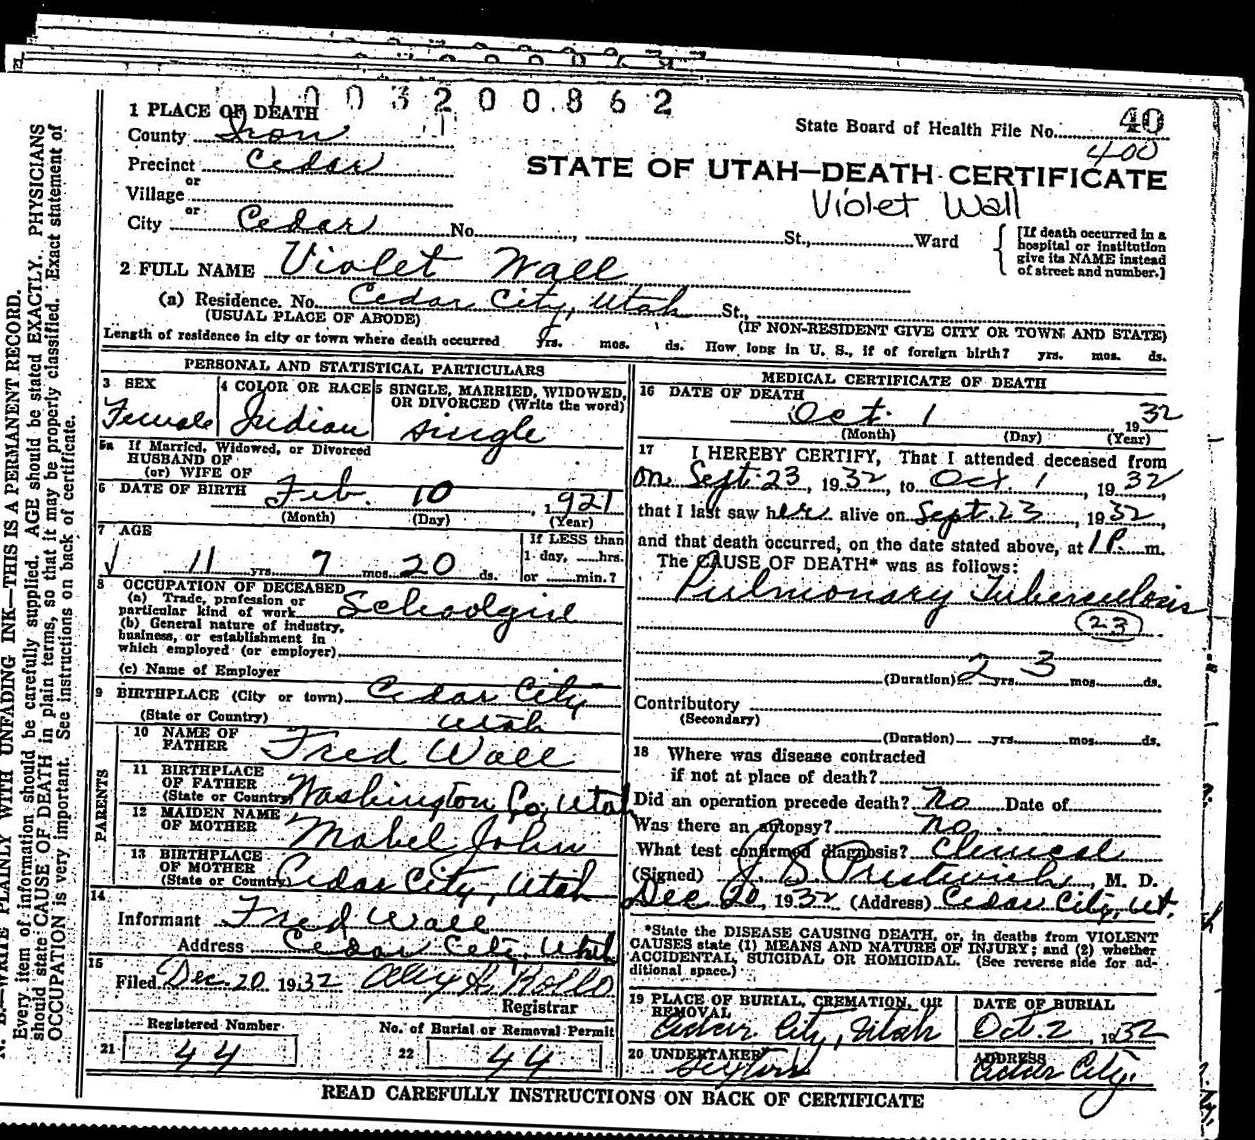 1003200862
1 PLACE OF DEATH
State Board of Health File No. 40
400
County Iron
Precinct Cedar
STATE OF UTAH—DEATH CERTIFICATE
Violet Wall
or
Village
or
City Cedar No. St., Ward
[If death occurred in a hospital or institution give its NAME instead of street and number.]
2 FULL NAME Violet Wall
(a) Residence. No. Cedar City, Utah St.,
(USUAL PLACE OF ABODE) (IF NON-RESIDENT GIVE CITY OR TOWN AND STATE)
Length of residence in city or town where death occurred yrs. mos. ds. How long in U. S., if of foreign birth? yrs. mos. ds.
PERSONAL AND STATISTICAL PARTICULARS
3 SEX
Female
4 COLOR OR RACE
Indian
5 SINGLE, MARRIED, WIDOWED,
OR DIVORCED (Write the word)
single
5a If Married, Widowed, or Divorced
HUSBAND OF
(or) WIFE OF
6 DATE OF BIRTH Feb. 10 1921
(Month) (Day) (Year)
7 AGE
11 yrs. 7 mos. 20 ds.
If LESS than
1 day, hrs.
or min.?
8 OCCUPATION OF DECEASED
(a) Trade, profession or
particular kind of work Schoolgirl
(b) General nature of industry,
business, or establishment in
which employed (or employer)
(c) Name of Employer
9 BIRTHPLACE (City or town) Cedar City
(State or Country) Utah
PARENTS
10 NAME OF
FATHER Fred Wall
11 BIRTHPLACE
OF FATHER
(State or Country) Washington Co, Utah
12 MAIDEN NAME
OF MOTHER Mabel John
13 BIRTHPLACE
OF MOTHER
(State or Country) Cedar City, Utah
14
Informant Fred Wall
Address Cedar City, Utah
15
Filed Dec. 20 1932 Alex H. Rollo
Registrar
Registered Number
21 44
No. of Burial or Removal Permit
22 44
MEDICAL CERTIFICATE OF DEATH
16 DATE OF DEATH
Oct. 1 1932
(Month) (Day) (Year)
17 I HEREBY CERTIFY, That I attended deceased from
on Sept. 23, 1932, to Oct. 1, 1932,
that I last saw her alive on Sept. 23, 1932,
and that death occurred, on the date stated above, at 1 P. m.
The CAUSE OF DEATH* was as follows:
Pulmonary Tuberculosis
23
(Duration) 2 yrs. 3 mos. ds.
Contributory
(Secondary)
(Duration) yrs. mos. ds.
18 Where was disease contracted
if not at place of death?
Did an operation precede death? no Date of
Was there an autopsy? no.
What test confirmed diagnosis? Clinical
(Signed) J. S. Prestwich, M. D.
Dec 20, 1932 (Address) Cedar City, Ut.
*State the DISEASE CAUSING DEATH, or, in deaths from VIOLENT
CAUSES state (1) MEANS AND NATURE OF INJURY; and (2) whether
ACCIDENTAL, SUICIDAL OR HOMICIDAL. (See reverse side for ad-
ditional space.)
19 PLACE OF BURIAL, CREMATION, OR
REMOVAL
Cedar City, Utah
DATE OF BURIAL
Oct. 2, 1932
20 UNDERTAKER
Sexton
ADDRESS
Cedar City.
READ CAREFULLY INSTRUCTIONS ON BACK OF CERTIFICATE
N. B.—WRITE PLAINLY WITH UNFADING INK—THIS IS A PERMANENT RECORD.
Every item of information should be carefully supplied. AGE should be stated EXACTLY. PHYSICIANS
should state CAUSE OF DEATH in plain terms, so that it may be properly classified. Exact statement of
OCCUPATION is very important. See instructions on back of certificate.